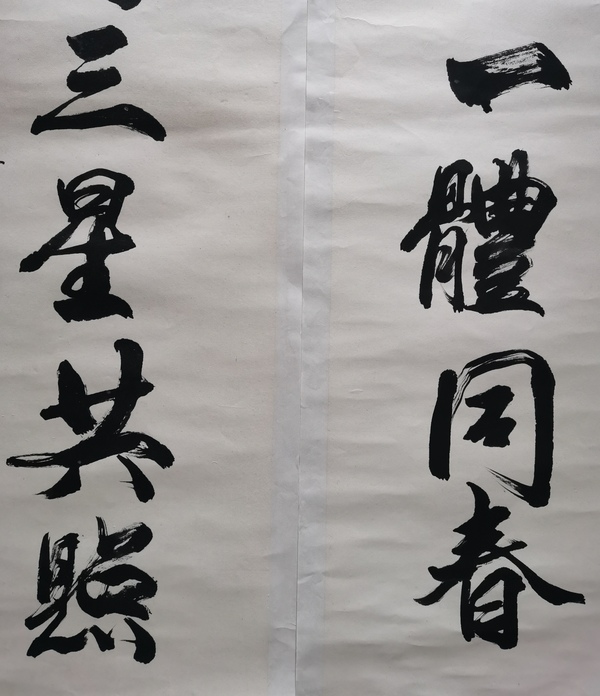 一體同春
三星共照